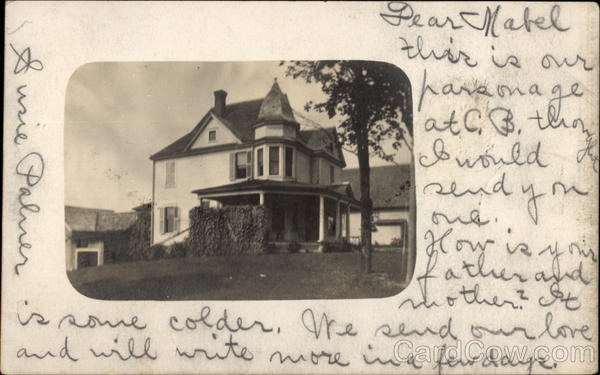 Dear Mabel
this is our
parsonage
at C. B. thought
I would
send you
one.
How is your
father and
mother? It
is some colder. We send our love
and will write more in a few days.
Susie Palmer
CardCow.com